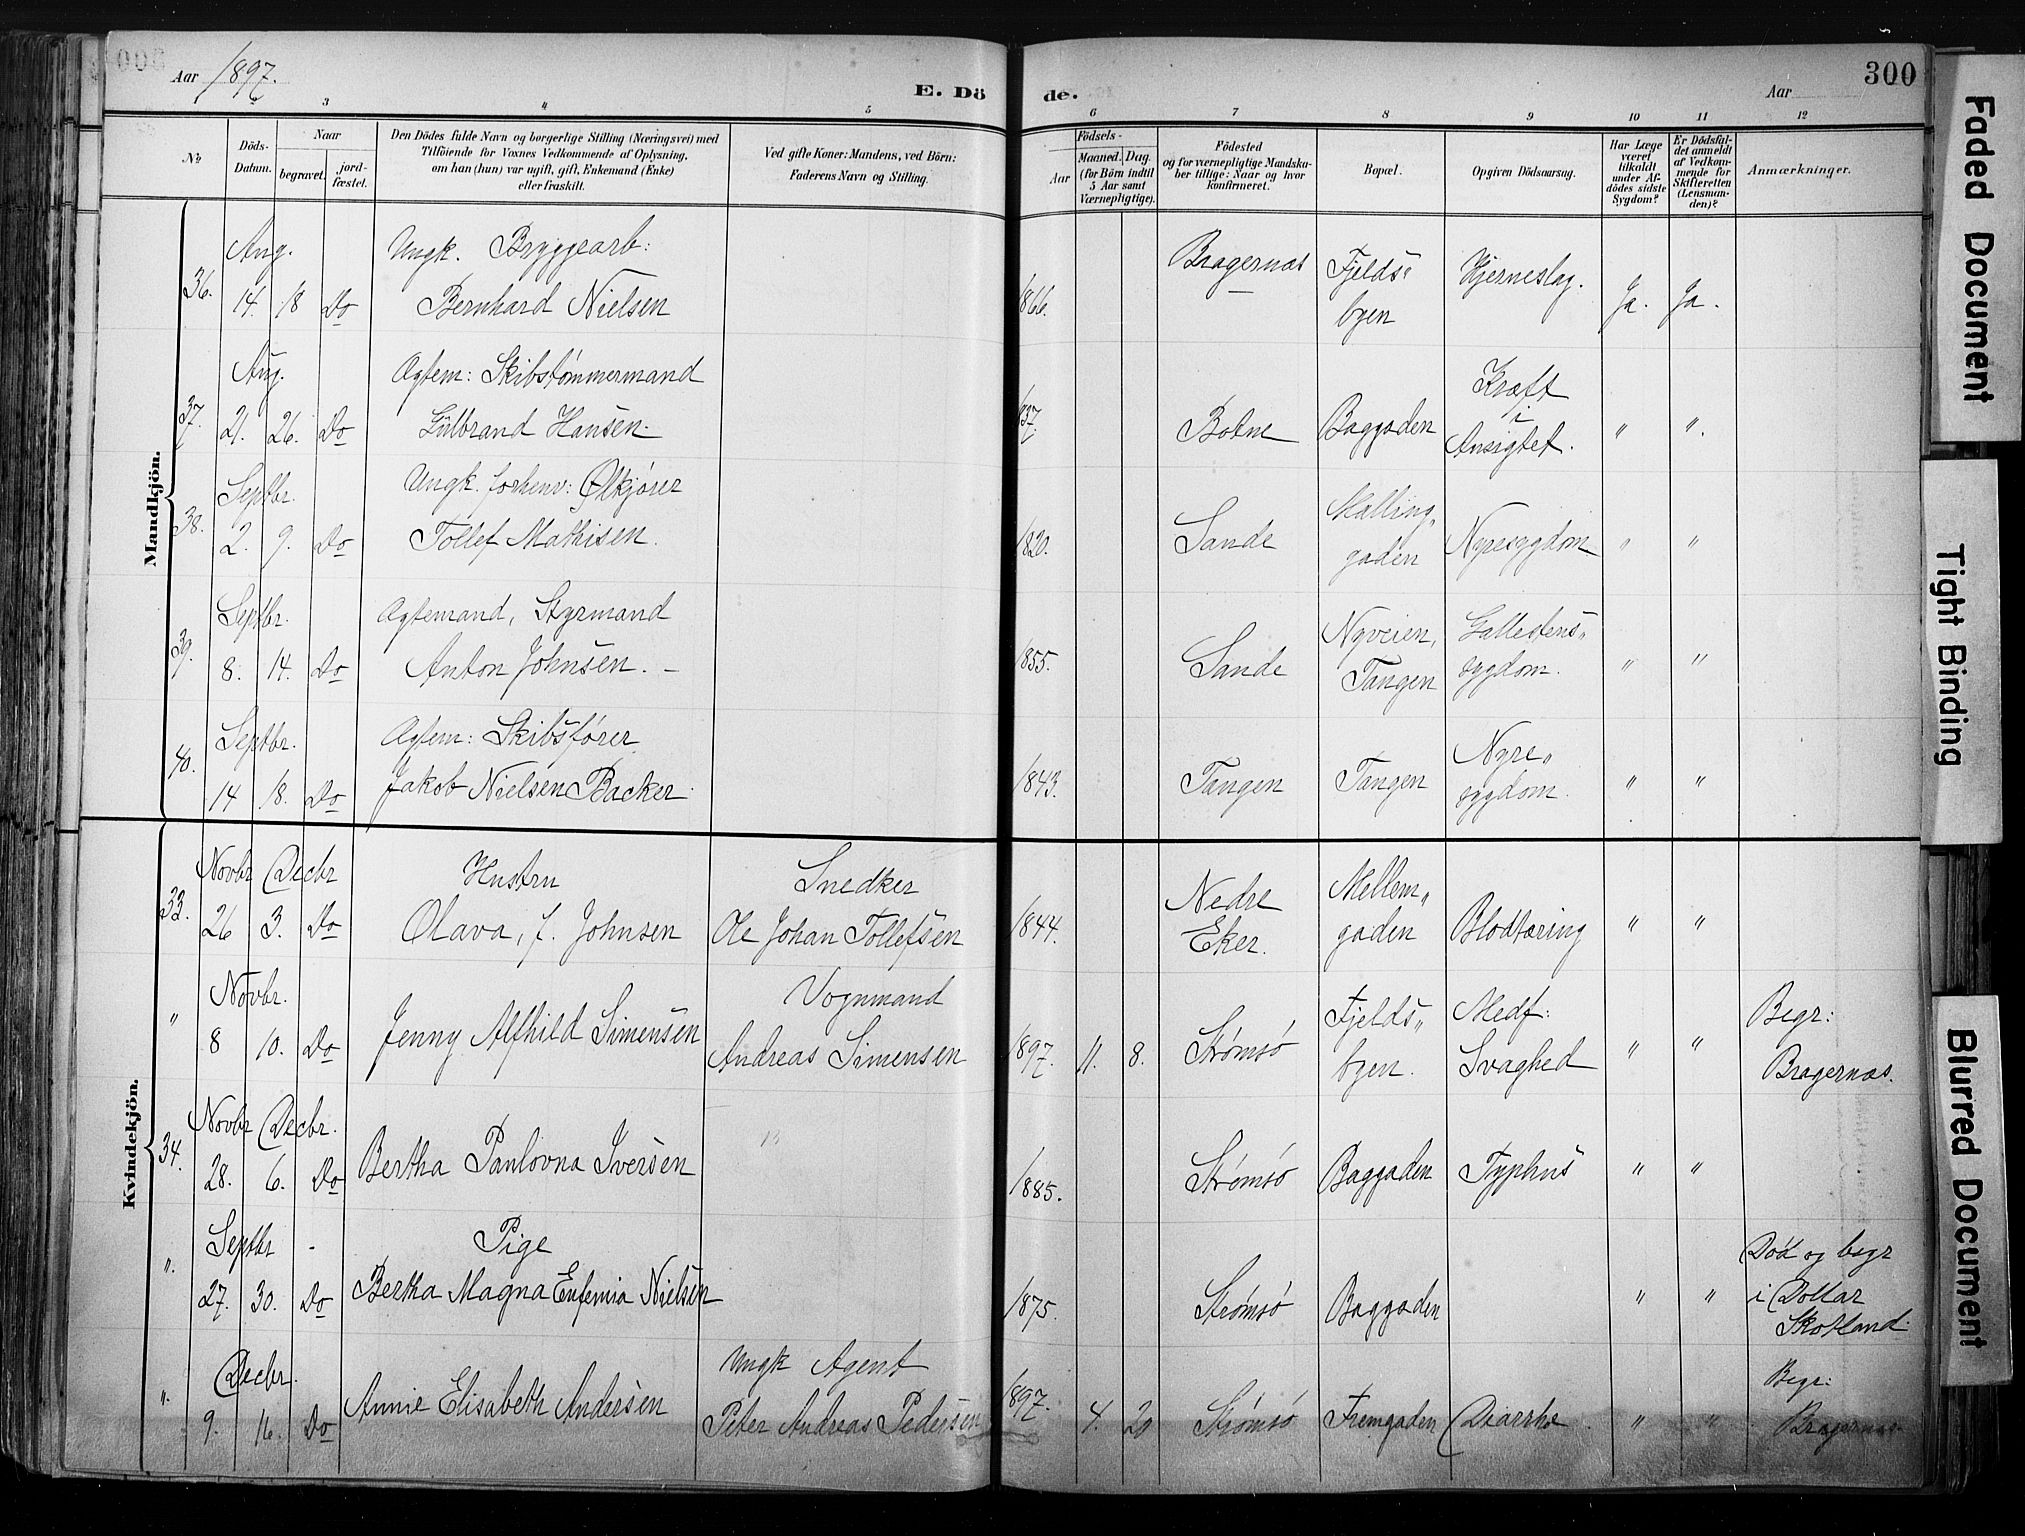 Aar 1897.
E. Dö
de.
Aar
300
3
4
5
6
7
8
9
10
11
12
No
Döds-
Datum.
Naar
begravet.
jord-
fæstet.
Den Dödes fulde Navn og borgerlige Stilling (Næringsvei) med
Tilföiende for Voxnes Vedkommende af Oplysning,
om han (hun) var ugift, gift, Enkemand (Enke)
eller fraskilt.
Ved gifte Koner: Mandens, ved Börn:
Faderens Navn og Stilling.
Födsels-
Aar
Maaned. Dag.
(for Börn indtil
5 Aar samt
Værnepligtige).
Födested
og for værnepligtige Mandska-
ber tillige: Naar og hvor
konfirmeret.
Bopæl.
Opgiven Dödsaarsag.
Har Læge
været
tilkaldt
under Af-
dödes sidste
Sygdom?
Er Dödsfal-
det anmeldt
af Vedkom-
mende for
Skifteretten
(Lensman-
den)?
Anmærkninger.
Mandkjön.
36. Aug. 14. 18 Do
Ungk. Bryggearb:
Bernhard Nielsen
1866. Bragernæs
Fjelds"
byen
Hjerneslag. Ja. Ja.
37. Aug. 21. 26. Do
Ægtem: Skibstømmermand
Gulbrand Hansen.
837. Botne Baggaden
Kræft
i
Ansigtet. " ".
38. Septbr. 2. 9. Do
Ungk. forhenv: Ølkjører
Tollef Mathisen.
1820. Sande
Mælling"
gaden
Nyresygdom " "
39. Septbr. 8. 14. Do
Ægtemand, Styrmand
Anton Johnsen. –
1855. Sande
Nyveien,
Tangen
Gallestens"
sygdom. " "
40. Septbr. 14 18. Do
Ægtem: Skibsfører
Jakob Nielsen Backer.
1843. Tangen Tangen
Nyre"
sygdom. " "
Kvindekjön.
33. Novbr 26 Decbr 3. Do
Hustru
Olava, f. Johnsen
Snedker
Ole Johan Tollefsen
1844.
Nedre
Eker.
Mellem"
gaden
Blodtæring " "
" Novbr. 8 10. Do
Jenny Alfhild Simensen
Vognmand
Andreas Simensen
1897. 11. 8. Strømsö
Fjelds"
byen.
Medf:
Svaghed " "
Begr:
Bragernæs.
34. Novbr 28. Decbr. 6. Do
Bertha Paulovna Iversen
1885. Strømsö Baggaden Typhus " "
". Septbr 27. 30. Do
Pige
Bertha Magna Eufemia Nielsen
1875. Strømsö Baggaden " "
Död og begr
i Dollar
Skotland.
". Decbr. 9. 16. Do
Annie Elisabeth Andersen
Ungk Agent
Peter Andreas Pedersen
1897. 4. 20 Strømsö Fremgaden Diarrhe. " "
Begr:
Bragernæs.
Faded Document
Tight Binding
Blurred Document